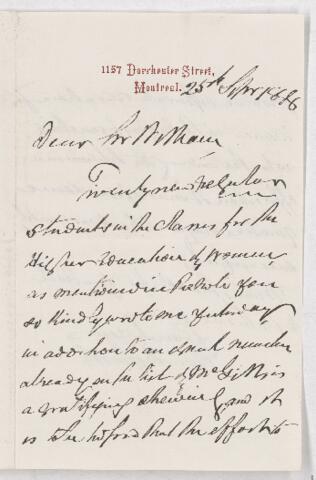 1157 Dorchester Street,
Montreal. 25th Sepr 1886
Dear Sir William
Twenty new regular
students in the Classes for the
Higher Education of Women,
as mentioned in the note you
so kindly wrote me yesterday
in addition to an equal number
already on the list of McGill is
a gratifying showing and it
is to be hoped that the effort to